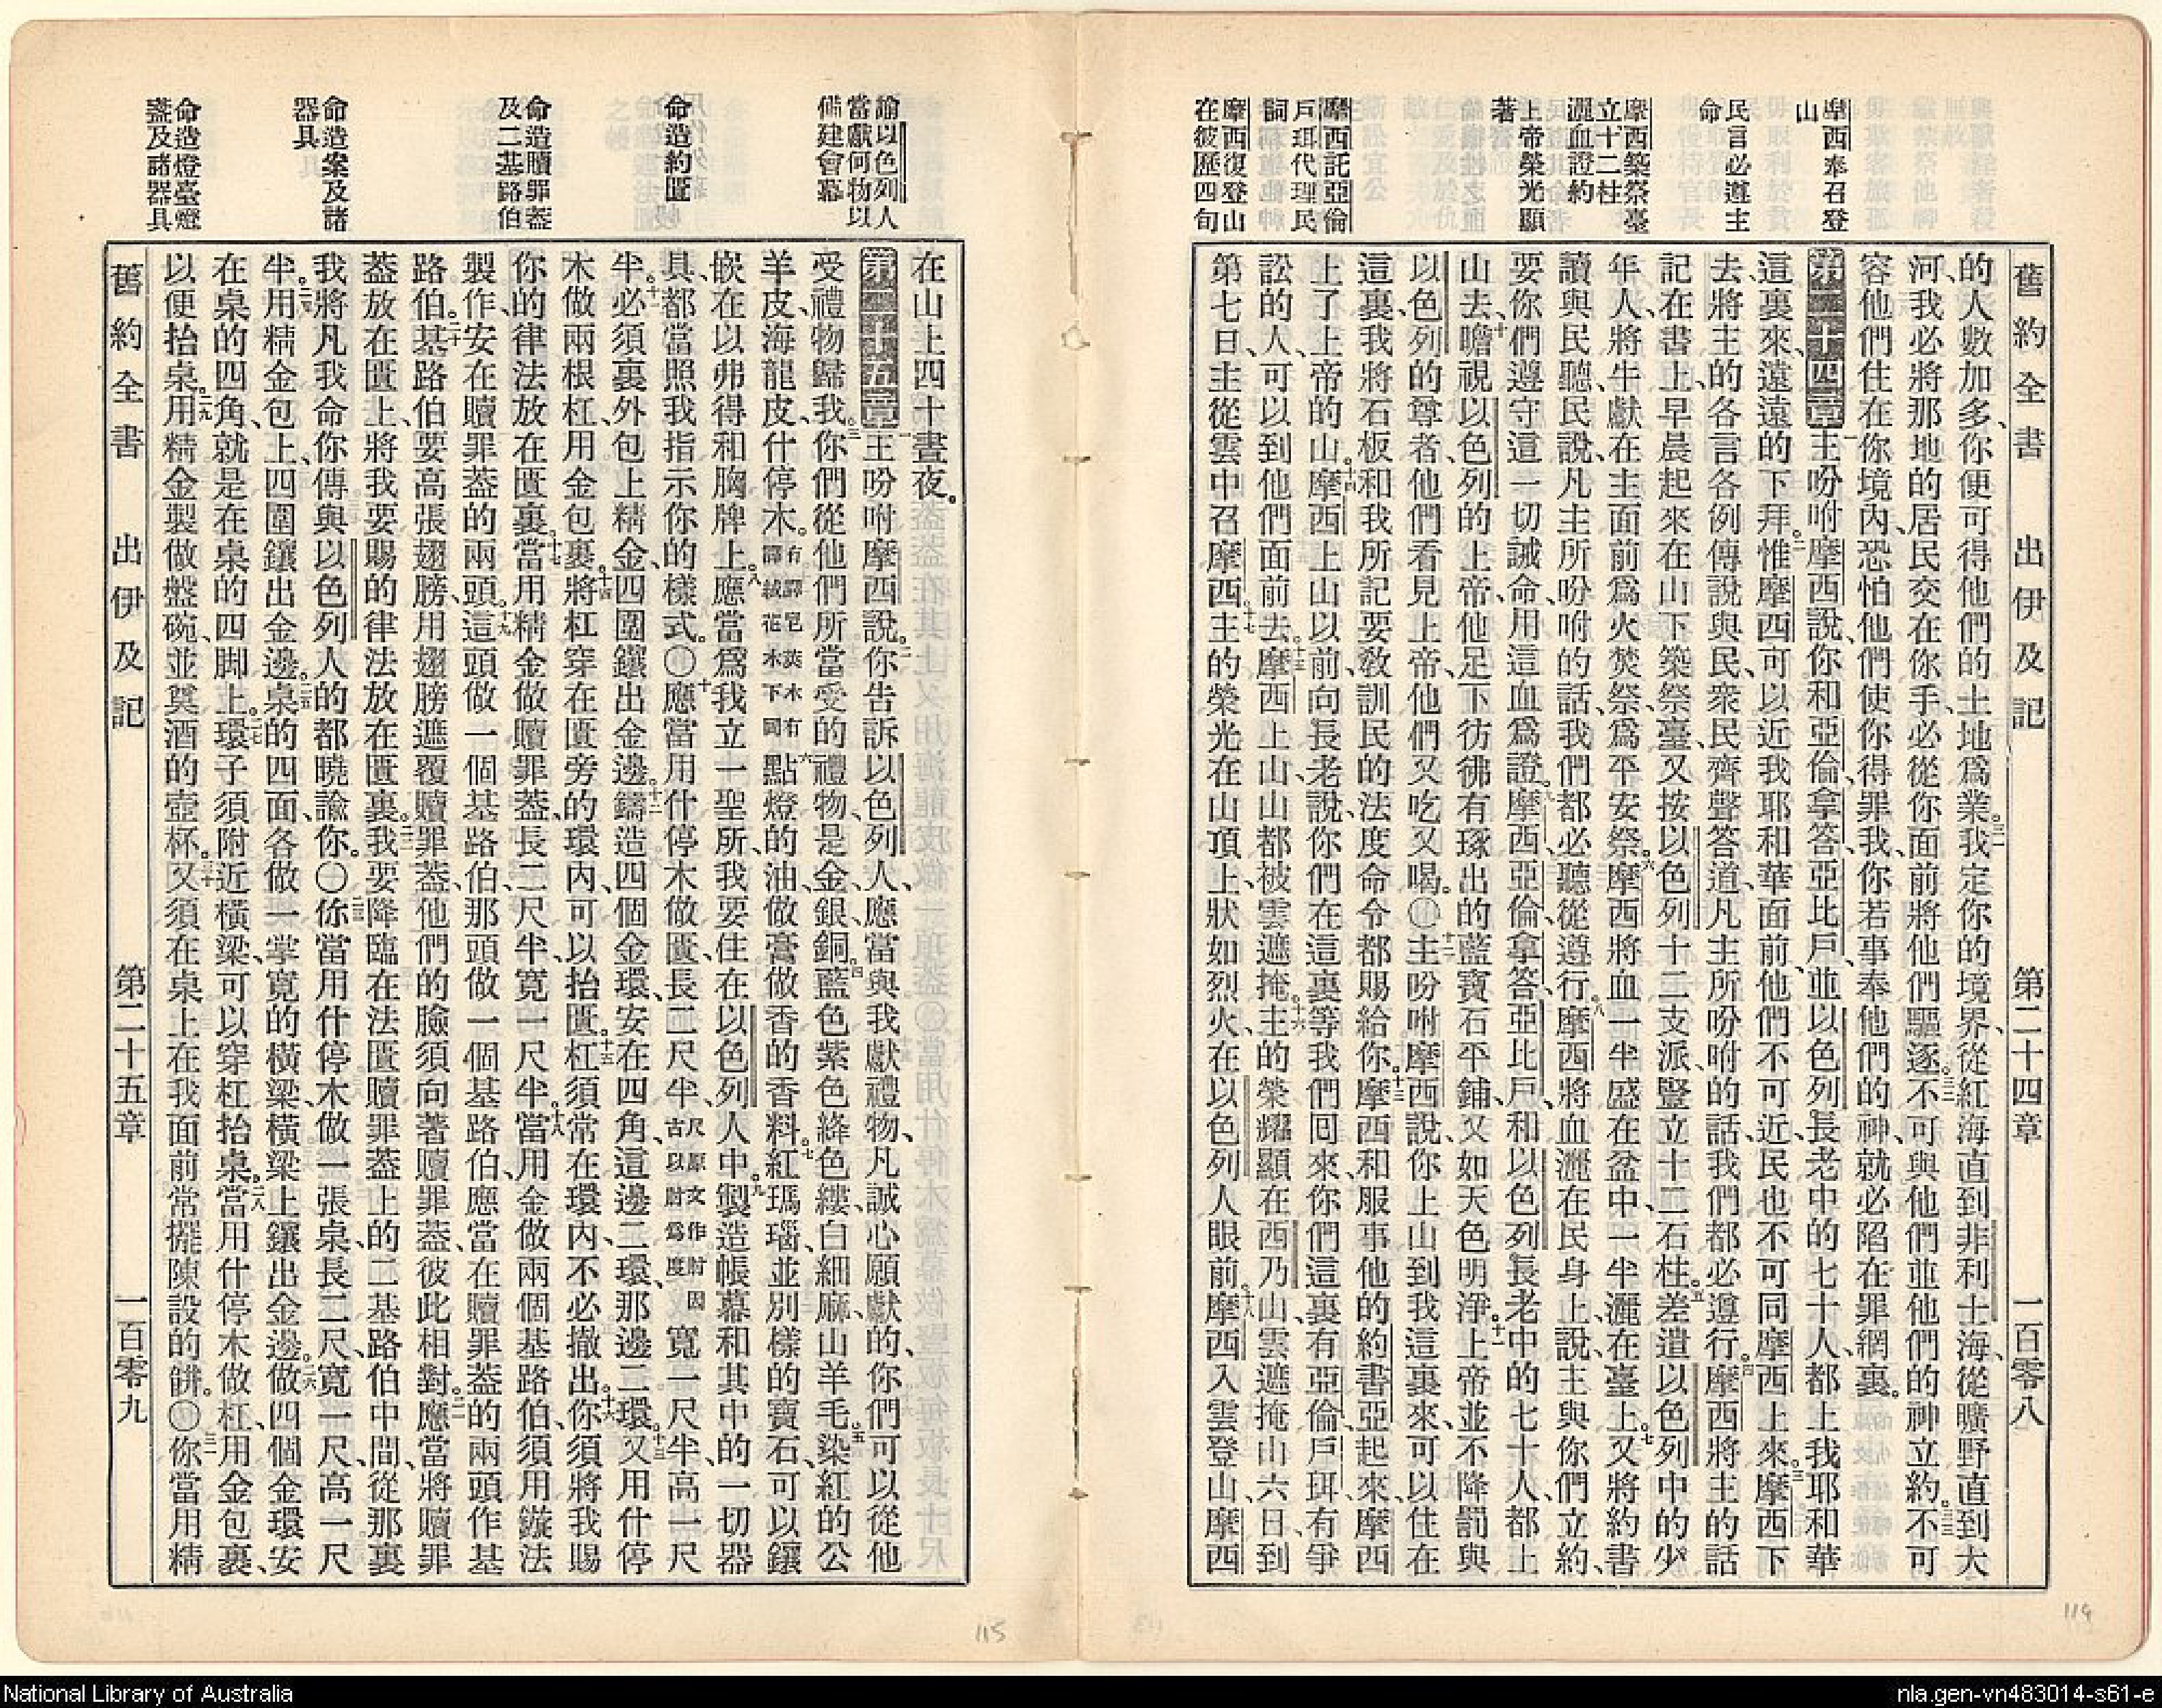 舊約全書 出伊及記 第二十四章 一百零八
摩西奉召登
山
民言必遵主
命
摩西築祭臺
立十二柱
灑血證約
上帝榮光顯
著
摩西託亞倫
戶珥代理民
詞
摩西復登山
在彼歷四旬
的人數加多、你便可得他們的土地爲業。三一我定你的境界、從紅海直到非利士海、從曠野直到大
河、我必將那地的居民交在你手、必從你面前將他們驅逐。三二不可與他們並他們的神立約。三三不可
容他們住在你境內、恐怕他們使你得罪我、你若事奉他們的神、就必陷在罪網裏。
第二十四章 一主吩咐摩西說、你和亞倫、拿答、亞比戶、並以色列長老中的七十人、都上我耶和華
這裏來、遠遠的下拜。二惟摩西可以近我耶和華面前、他們不可近、民也不可同摩西上來。三摩西下
去、將主的各言各例傳說與民、衆民齊聲答道、凡主所吩咐的話、我們都必遵行。四摩西將主的話
記在書上、早晨起來、在山下築祭臺、又按以色列十二支派、豎立十二石柱。五差遣以色列中的少
年人、將牛獻在主面前爲火焚祭、爲平安祭。六摩西將血一半盛在盆中、一半灑在臺上。七又將約書
讀與民聽、民說、凡主所吩咐的話、我們都必聽從遵行。八摩西將血灑在民身上、說、主與你們立約、
要你們遵守這一切誡命、用這血爲證。九摩西、亞倫、拿答、亞比戶、和以色列長老中的七十人都上
山去、十瞻視以色列的上帝、他足下彷彿有琢出的藍寶石平鋪、又如天色明淨。十一上帝並不降罰與
以色列的尊者、他們看見上帝、他們又吃又喝。〇十二主吩咐摩西說、你上山到我這裏來、可以住在
這裏、我將石板和我所記要教訓民的法度命令、都賜給你。十三摩西和服事他的約書亞起來、摩西
上了上帝的山。十四摩西上山以前、向長老說、你們在這裏等我們回來、你們這裏有亞倫戶珥、有爭
訟的人、可以到他們面前去。十五摩西上山、山都被雲遮掩。十六主的榮耀顯在西乃山、雲遮掩山六日、到
第七日、主從雲中召摩西。十七主的榮光在山頂上、狀如烈火、在以色列人眼前。十八摩西入雲登山、摩西
諭以色列人
當獻何物以
備建會幕
命造約匱
命造贖罪葢
及二基路伯
命造案及諸
器具
命造燈臺燈
盞及諸器具
在山上四十晝夜。
第二十五章 一主吩咐摩西說。二你告訴以色列人、應當與我獻禮物、凡誠心願獻的、你們可以從他
受禮物歸我。三你們從他們所當受的禮物、是金銀銅、四藍色紫色絳色縷、白細麻、山羊毛、五染紅的公
羊皮、海龍皮、什停木。有譯皂莢木有譯絨花木下同六點燈的油、做膏做香的香料。七紅瑪瑙、並別樣的寶石、可以鑲
嵌在以弗得和胸牌上。八應當爲我立一聖所、我要住在以色列人中。九製造帳幕和其中的一切器
具、都當照我指示你的樣式。〇十應當用什停木做匱、長二尺半、尺原文作肘因古以肘爲度寬一尺半、高一尺
半。十一必須裏外包上精金、四圍鑲出金邊。十二鑄造四個金環、安在四角、這邊二環、那邊二環。十三又用什停
木做兩根杠、用金包裹。十四將杠穿在匱旁的環內、可以抬匱。十五杠須常在環內、不必撤出。十六你須將我賜
你的律法放在匱裏。十七當用精金做贖罪葢、長二尺半、寬一尺半。十八當用金做兩個基路伯、須用鏇法
製作、安在贖罪葢的兩頭。十九這頭做一個基路伯、那頭做一個基路伯、應當在贖罪葢的兩頭作基
路伯。二十基路伯要高張翅膀、用翅膀遮覆贖罪葢、他們的臉須向著贖罪葢、彼此相對。二一應當將贖罪
葢放在匱上、將我要賜的律法放在匱裏。二二我要降臨在法匱贖罪葢上的二基路伯中間、從那裏
我將凡我命你傳與以色列人的、都曉諭你。〇二三你當用什停木做一張桌、長二尺、寬一尺、高一尺
半。二四用精金包上、四圍鑲出金邊。二五桌的四面、各做一掌寬的橫梁、橫梁上鑲出金邊。二六做四個金環、安
在桌的四角、就是在桌的四脚上。二七環子須附近橫梁、可以穿杠抬桌。二八當用什停木做杠、用金包裹、
以便抬桌。二九用精金製做盤碗、並奠酒的壺杯。三十又須在桌上、在我面前常擺陳設的餅。〇三一你當用精
舊約全書 出伊及記 第二十五章 一百零九
115
114
National Library of Australia
nla.gen-vn483014-s61-e